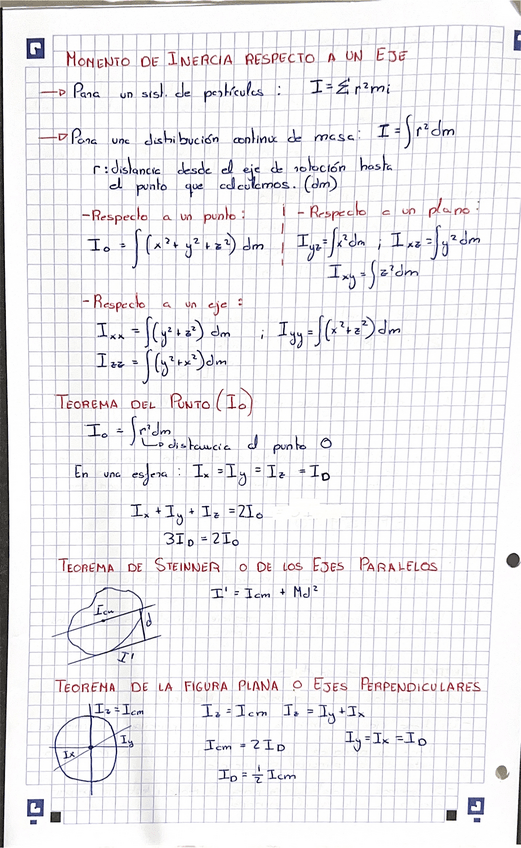 MOMENTO DE INERCIA RESPECTO A UN EJE
→ Para un sist. de partículas : I = Σ r² mi
→ Para una distribución continua de masa: I = ∫ r² dm
r: distancia desde el eje de rotación hasta
el punto que calculemos. (dm)
- Respecto a un punto:
I₀ = ∫(x² + y² + z²) dm
- Respecto a un plano:
Iyz = ∫x² dm ; Ixz = ∫y² dm
Ixy = ∫z² dm
- Respecto a un eje :
Ixx = ∫(y² + z²) dm ; Iyy = ∫(x² + z²) dm
Izz = ∫(y² + x²) dm
TEOREMA DEL PUNTO (I₀)
I₀ = ∫ r² dm
↳ distancia al punto O
En una esfera : Ix = Iy = Iz = ID
Ix + Iy + Iz = 2I₀
3ID = 2I₀
TEOREMA DE STEINNER O DE LOS EJES PARALELOS
I' = Icm + Md²
Icm
d
I'
TEOREMA DE LA FIGURA PLANA O EJES PERPENDICULARES
Iz = Icm
Ix
Iy
Iz = Icm Iz = Iy + Ix
Icm = 2ID Iy = Ix = ID
ID = ½ Icm